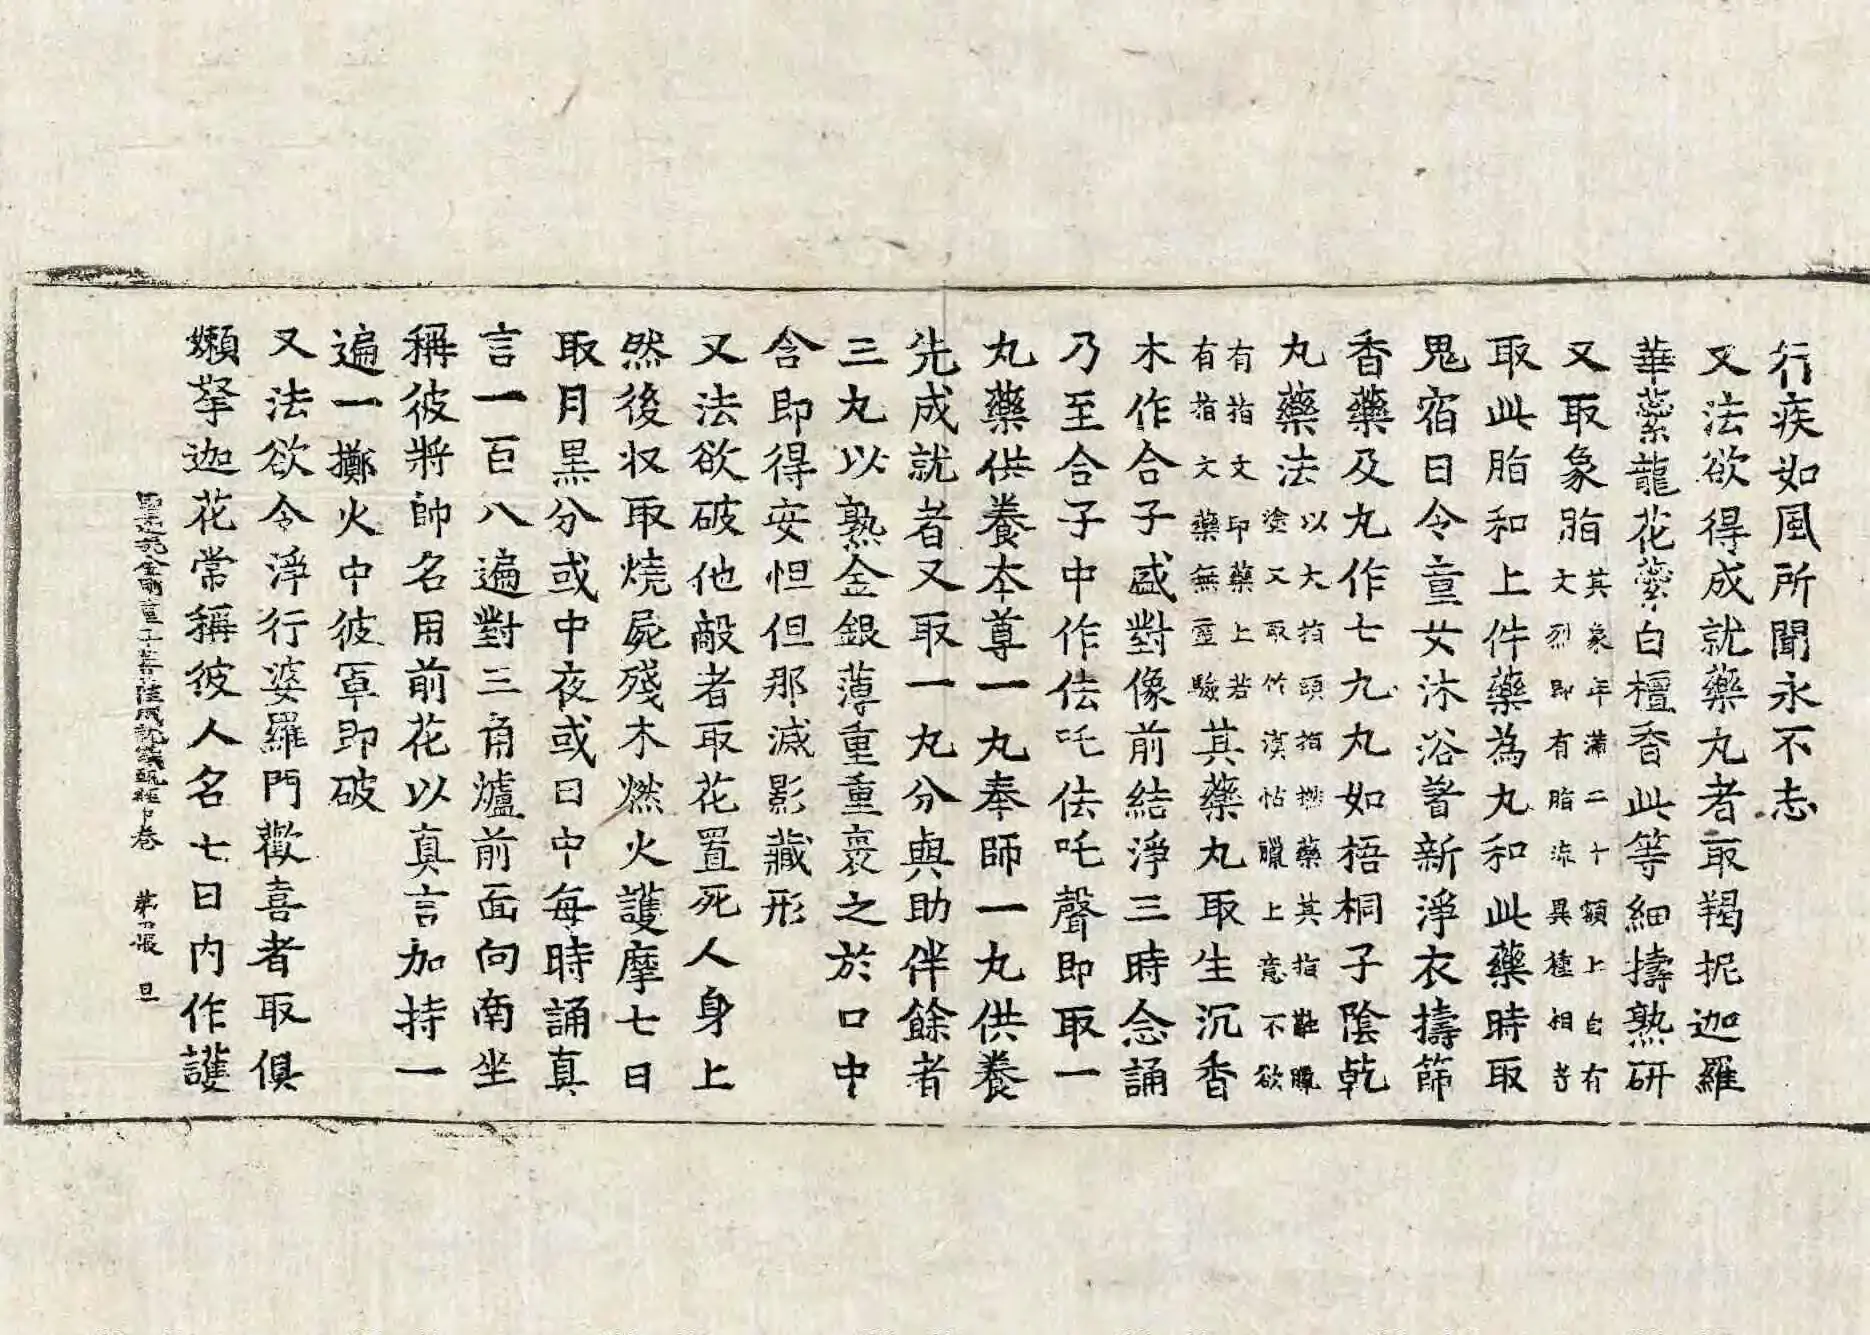 行疾如風所聞永不忘
又法欲得成就藥丸者取羯抳迦羅
華蘂龍花蘂白檀香此等細擣熟研
又取象脂其象年滿二十額上自有文烈即有脂流異種相者
取此脂和上件藥為丸和此藥時取
鬼宿日令童女沐浴著新淨衣擣篩
香藥及丸作七丸丸如梧桐子陰乾
丸藥法以大指頭指撚藥其指難䑛塗又取竹漠怗䑛上意不欲
有指文印藥上若有指文藥無靈驗其藥丸取生沉香
木作合子盛對像前結淨三時念誦
乃至合子中作佉吒佉吒聲即取一
丸藥供養本尊一丸奉師一丸供養
先成就者又取一丸分與助伴餘者
三丸以熟金銀薄重重裹之於口中
含即得安怛但那滅影藏形
又法欲破他敵者取花置死人身上
然後收取燒屍殘木燃火護摩七日
取月黑分或中夜或日中每時誦真
言一百八遍對三角爐前面向南坐
稱彼將帥名用前花以真言加持一
遍一擲火中彼軍即破
又法欲令淨行婆羅門歡喜者取俱
嬾拏迦花常稱彼人名七日內作護
聖迦抳金剛童子菩薩成就儀軌經中卷 第四張 旦